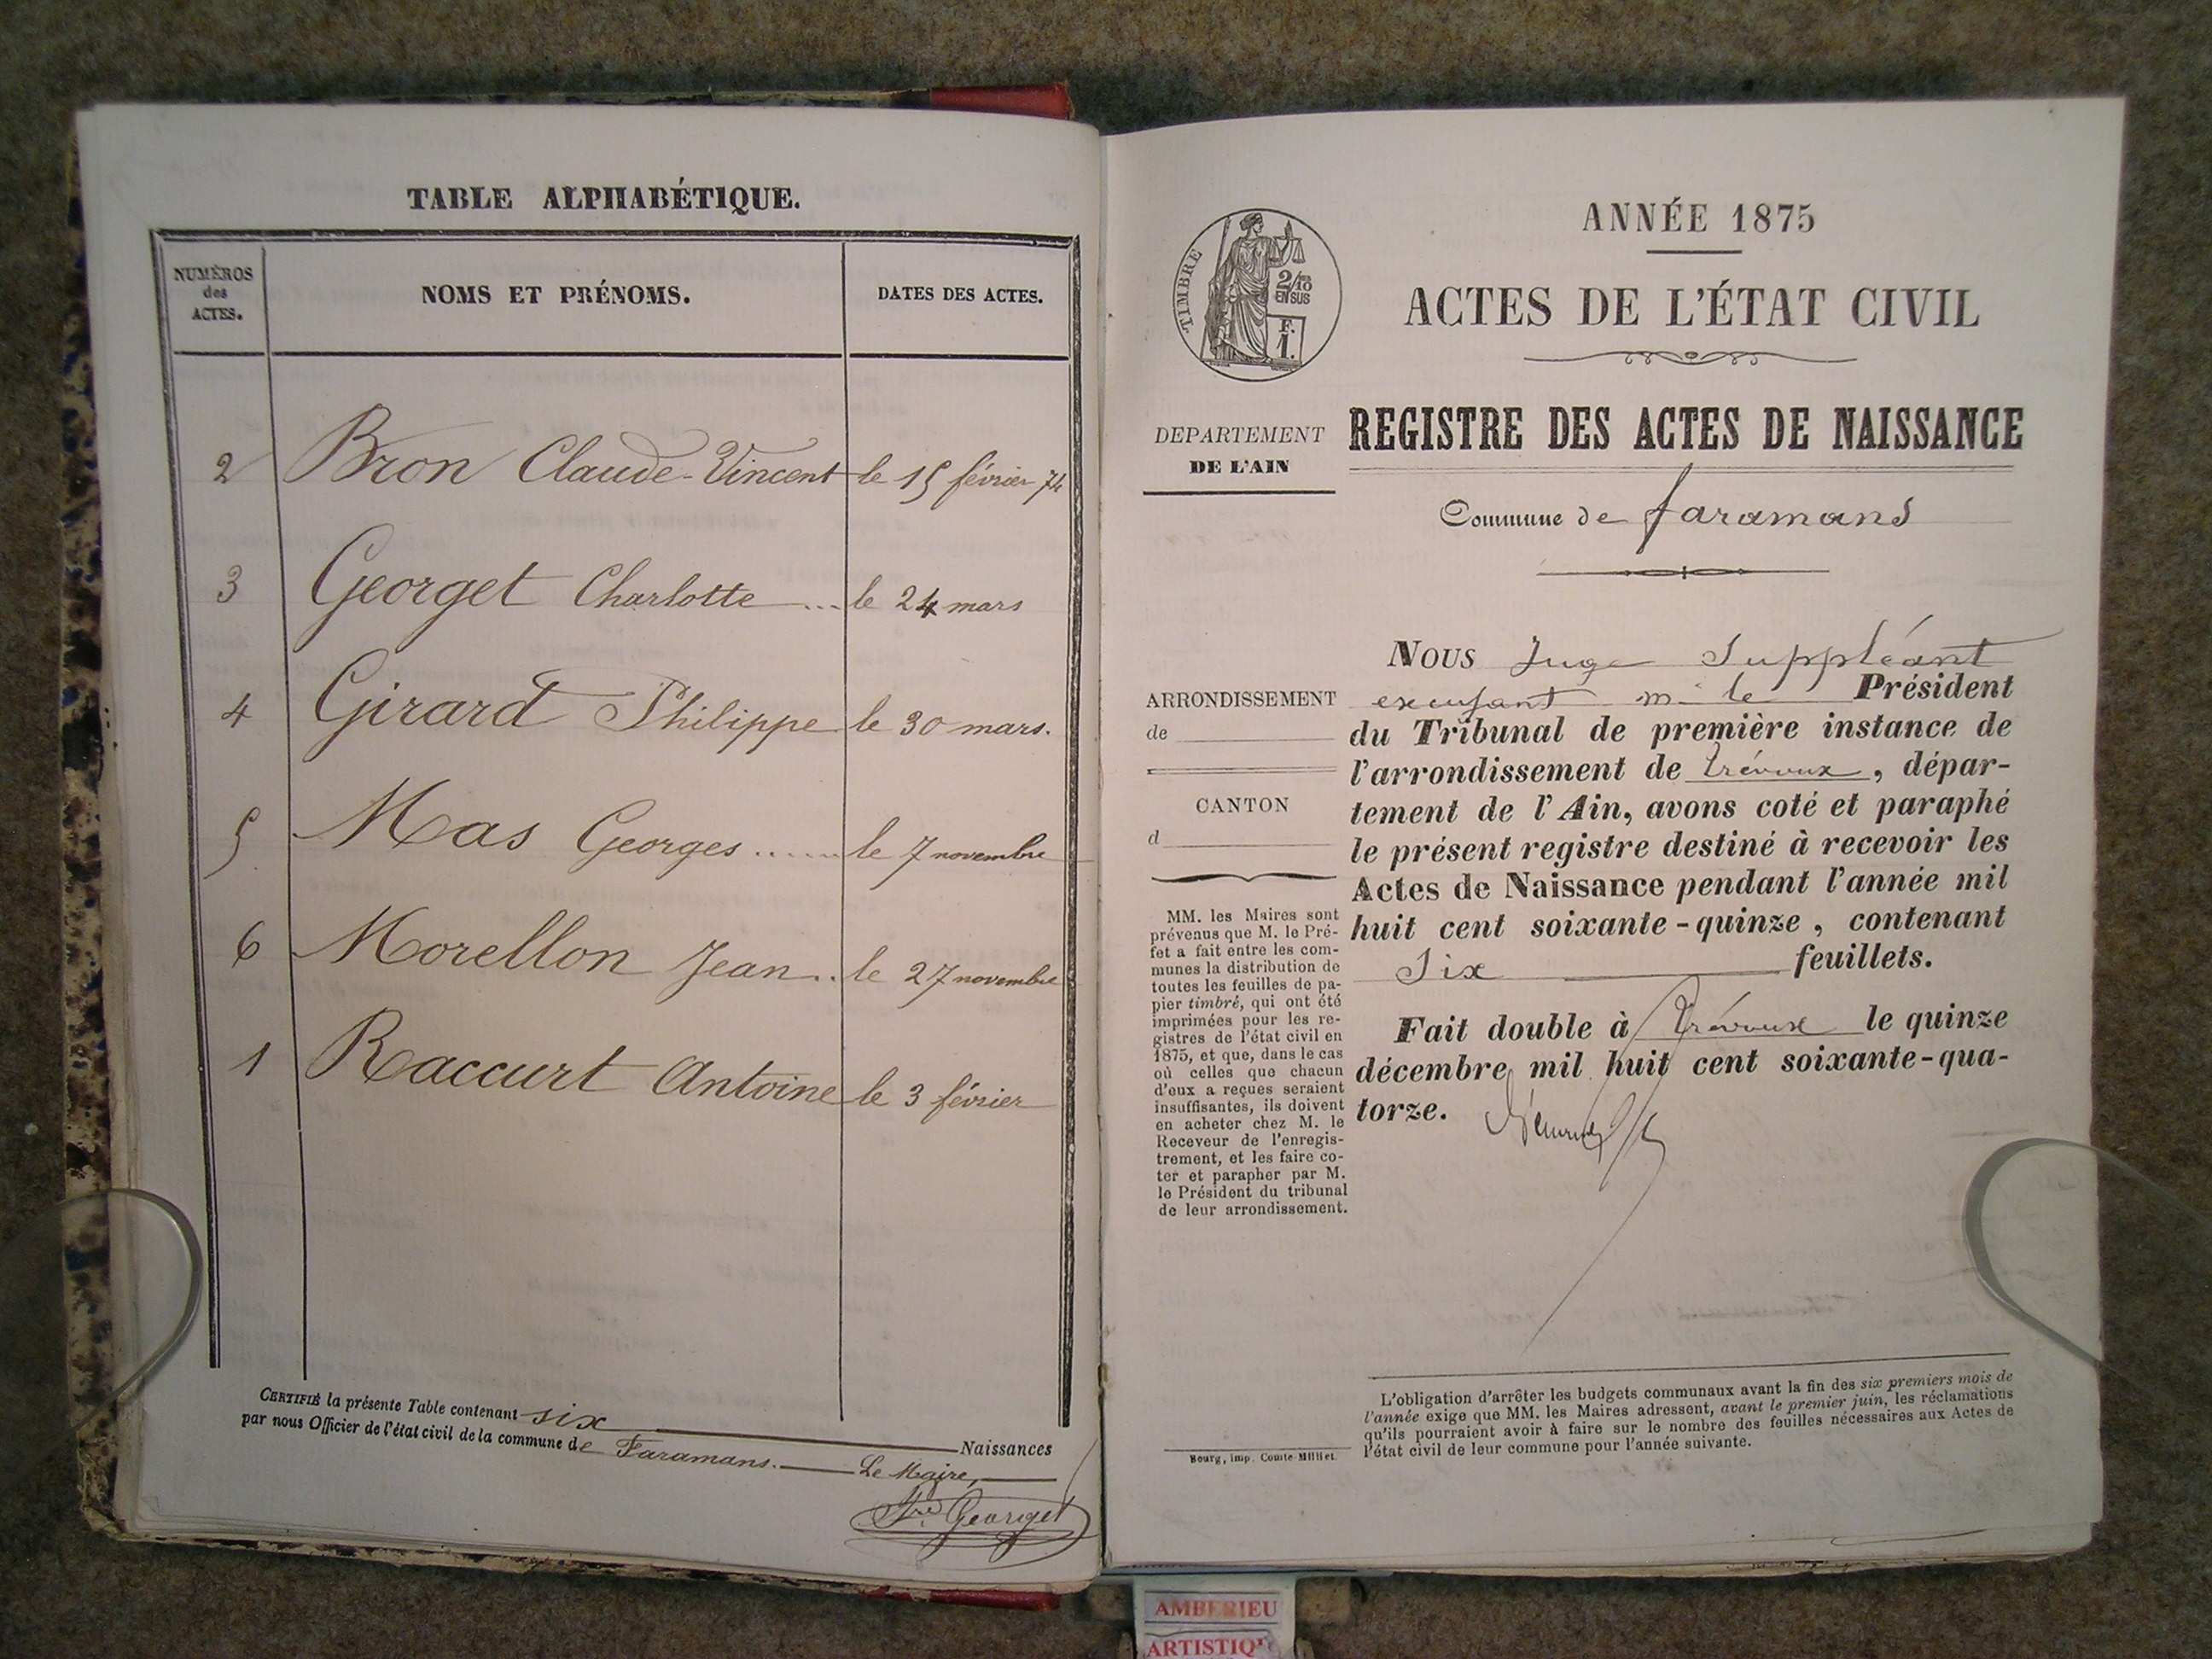 TABLE ALPHABÉTIQUE.
NUMÉROS des ACTES.
NOMS ET PRÉNOMS.
DATES DES ACTES.
2 Bron Claude-Vincent le 15 février 74
3 Georget Charlotte ... le 24 mars
4 Girard Philippe le 30 mars.
5 Mas Georges ...... le 7 novembre
6 Morellon Jean .. le 27 novembre
1 Raccurt Antoine le 3 février
CERTIFIÉ la présente Table contenant six Naissances
par nous Officier de l'état civil de la commune de Faramans. Le Maire,
Georget
TIMBRE
2/10 EN SUS
F. 1.
DEPARTEMENT
DE L'AIN
ARRONDISSEMENT
de
CANTON
d
MM. les Maires sont
prévenus que M. le Pré-
fet a fait entre les com-
munes la distribution de
toutes les feuilles de pa-
pier timbré, qui ont été
imprimées pour les re-
gistres de l'état civil en
1875, et que, dans le cas
où celles que chacun
d'eux a reçues seraient
insuffisantes, ils doivent
en acheter chez M. le
Receveur de l'enregis-
trement, et les faire co-
ter et parapher par M.
le Président du tribunal
de leur arrondissement.
Bourg, imp. Comte-Milliet.
ANNÉE 1875
ACTES DE L'ÉTAT CIVIL
REGISTRE DES ACTES DE NAISSANCE
Commune de faramans
NOUS Juge Suppléant
excusant m. le Président
du Tribunal de première instance de
l'arrondissement de Trévoux, dépar-
tement de l'Ain, avons coté et paraphé
le présent registre destiné à recevoir les
Actes de Naissance pendant l'année mil
huit cent soixante-quinze, contenant
Six feuillets.
Fait double à Trévoux le quinze
décembre mil huit cent soixante-qua-
torze.
L'obligation d'arrêter les budgets communaux avant la fin des six premiers mois de
l'année exige que MM. les Maires adressent, avant le premier juin, les réclamations
qu'ils pourraient avoir à faire sur le nombre des feuilles nécessaires aux Actes de
l'état civil de leur commune pour l'année suivante.
AMBERIEU
ARTISTIQ